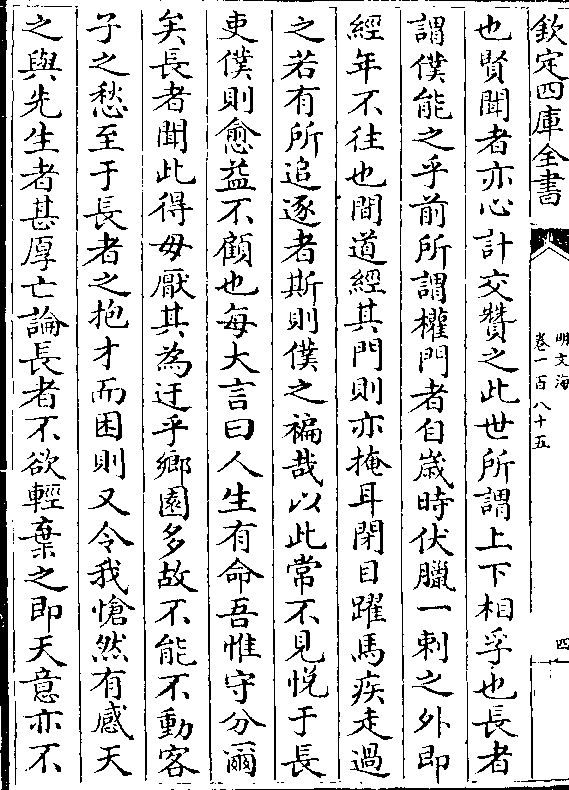 欽定四庫全書
明文海
卷一百八十五
四
也賢聞者亦心計交贊之此世所謂上下相孚也長者
謂僕能之乎前所謂權門者自歲時伏臘一刺之外即
經年不往也間道經其門則亦掩耳閉目躍馬疾走過
之若有所追逐者斯則僕之褊哉以此常不見悅于長
吏僕則愈益不顧也每大言曰人生有命吾惟守分爾
矣長者聞此得毋厭其為迂乎鄉園多故不能不動客
子之愁至于長者之抱才而困則又令我愴然有感天
之與先生者甚厚亡論長者不欲輕棄之即天意亦不